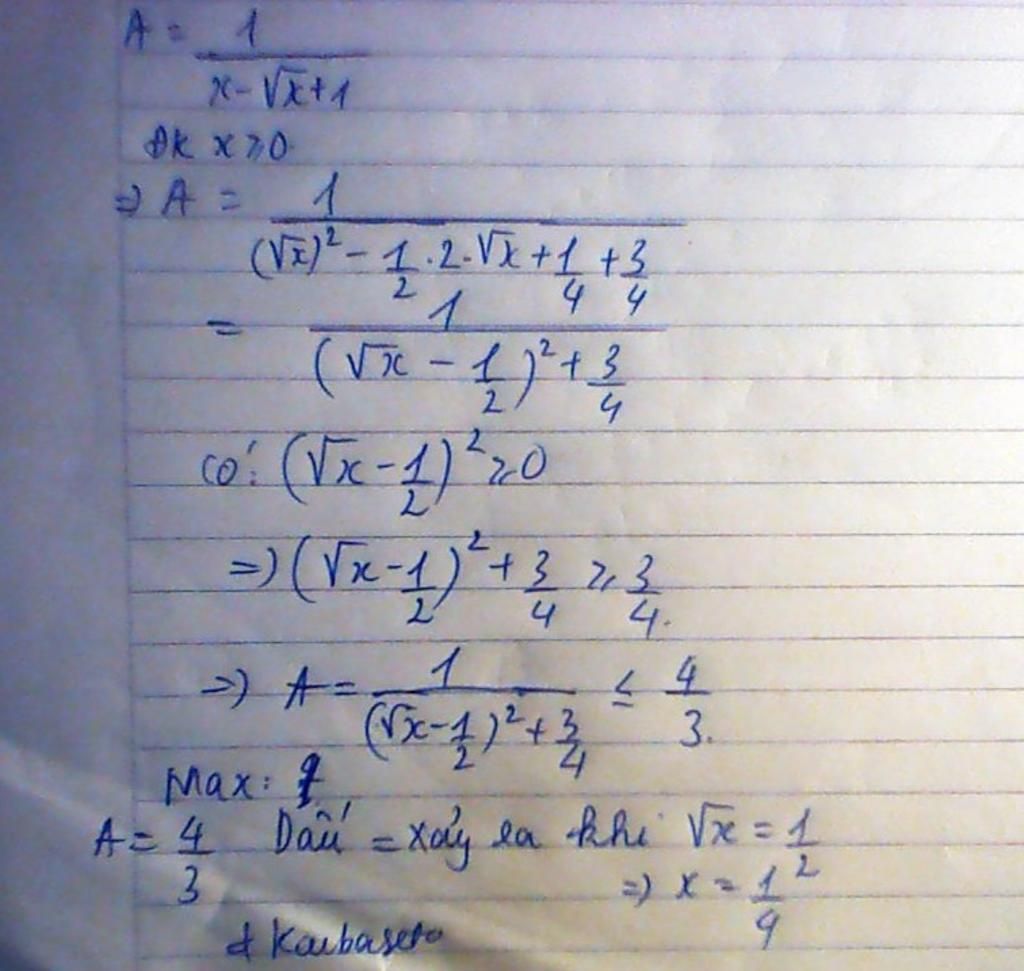 A = 1/(x - √x + 1)
Đk x ≥ 0
⇒ A = 1/((√x)² - 1/2 . 2 . √x + 1/4 + 3/4)
= 1/((√x - 1/2)² + 3/4)
có: (√x - 1/2)² ≥ 0
⇒ (√x - 1/2)² + 3/4 ≥ 3/4.
⇒ A = 1/((√x - 1/2)² + 3/4) ≤ 4/3.
Max:
A = 4/3 Dấu = xảy ra khi √x = 1/2
⇒ x = 1/4